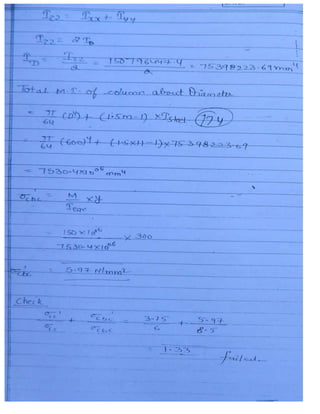 I_ZZ = I_XX + I_YY
I_ZZ = 2 I_D
I_D = I_ZZ / 2 = 150796447.4 / 2 = 75398223.69 mm⁴
Total M.I. of column about Diameter
= π/64 (D⁴) + (1.5m-1) × I_steel
= π/64 (600)⁴ + (1.5×11-1) × 75398223.69
= 7530.4×10⁰⁶ mm⁴
σ'cbc = M / I_ev × y
= 150×10⁶ / 7530.4×10⁰⁶ × 300
σ'cbc = 5.97 N/mm²
Check
σcc' / σcc + σcbc' / σcbc = 3.75 / 6 + 5.97 / 8.5
= 1.33 failed.